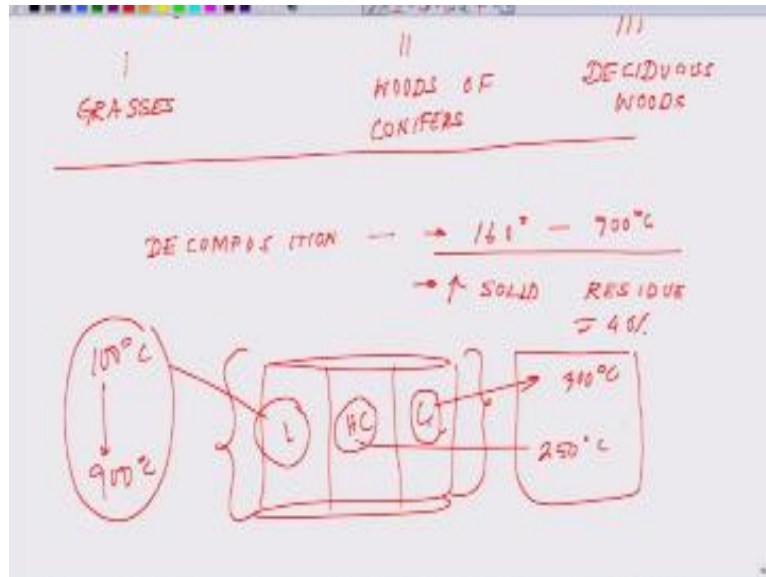 I
II
III
GRASSES
WOODS OF
CONIFERS
DECIDUOUS
WOODS
DECOMPOSITION — → 160° — 900°C
→ ↑ SOLID RESIDUE
40%
100°C
↓
900°C
L
HC
C
250°C